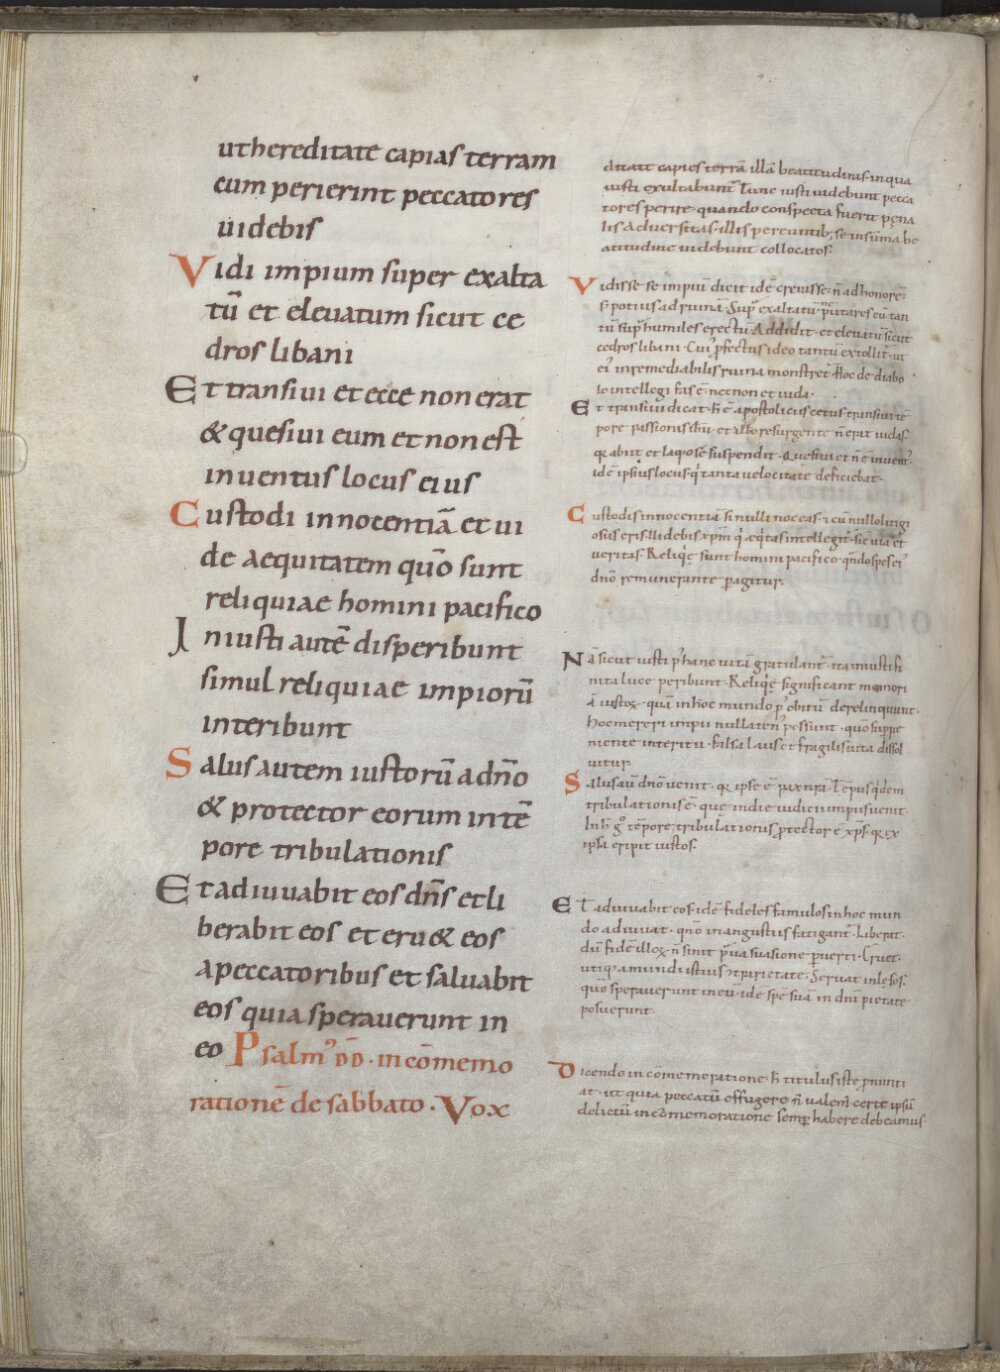 ut hereditate capias terram
cum perierint peccatores
uidebis
Vidi impium super exalta
tū et eleuatum sicut ce
dros libani
Et transiui et ecce non erat
& quesiui eum et non est
inuentus locus eius
Custodi innocentiā et ui
de aequitatem quō sunt
reliquiae homini pacifico
Iniusti autē disperibunt
simul reliquiae impiorū
interibunt
Salus autem iustorū a dn̄o
& protector eorum in tē
pore tribulationis
Et adiuuabit eos dn̄s et li
berabit eos et eru& eos
a peccatoribus et saluabit
eos quia sperauerunt in
eo Psalm' DD · in cōmemo
rationē de sabbato · Vox
ditate capies terrā illā beatitudinis in qua
iusti exultabunt Tunc iusti uidebunt pecca
tores perire · quando conspecta fuerit pęna
lis aduersitas · illis pereuntib; se in sūma be
atitudine uidebunt collocatos ·
Vidisse se impiū dicit idē creuisse · n̄ ad honorē
s; potius ad ruinā · Sup exaltatū putares eū tan
tū sup humiles erectū Addidit · et eleuatū sicut
cedros libani · Cui' pfectus ideo tantū extollit' ut
ei' inremediabilis ruina monstret' Hoc de diabo
lo intellegi fas ē · nec non et iuda ·
Et transiui dicat · h̄ ē apostolicus cetus transiui tē
pore passionis ih̄u · et illo resurgente n̄ erit iudas
qr abiit et laqo se suspendit · Quesiui et n̄ ē inuent'
idē ipsius locus · q tanta uelocitate deficiebat ·
Custodis innocentiā si nulli noceas · & cū nullo litigi
osus eris · Uidebis xp̄m qi eqitas intellegit' sic uia et
ueritas · Reliqę sunt homini pacifico · qn̄do spes ei'
dn̄o remunerante pagitur ·
Nā sicut iusti p hanc uitā gratulant' · ita iniusti fi
nita luce peribunt · Reliqę significant memori
ā iustoꝝ · quā in hoc mundo p' obitū derelinquunt ·
hoc mereri impii nullaten' possunt · quō sup re
niente interitu · falsa laus et fragilis uita dissol
uitur
Salus aū dn̄o uenit · qr ipse ē
tribulationis ē · que in die iudicii impiis uenit ·
In h' g° tēpore tribulationis ptector ē xp̄s · qr ex
ipsa eripit iustos ·
Et adiuuabit eos · idē fideles famulos in hoc mun
do adiuuat · qn̄o in angustiis fatigant' · Liberat ·
dū fidē illoꝝ · n̄ sinit praua suasione puerti · Eruet ·
utiq; a mundi istius Seruat inlesos ·
quo sperauerunt in eū · idē spē suā in dn̄i pietate
posuerunt ·
Dicendo in cōmemoratione · h̄ titulus iste pnunti
at · ut quia peccatū effugere n̄ ualem' · certe ipsū
delictū in cōmemoratione semp habere debeamus ·